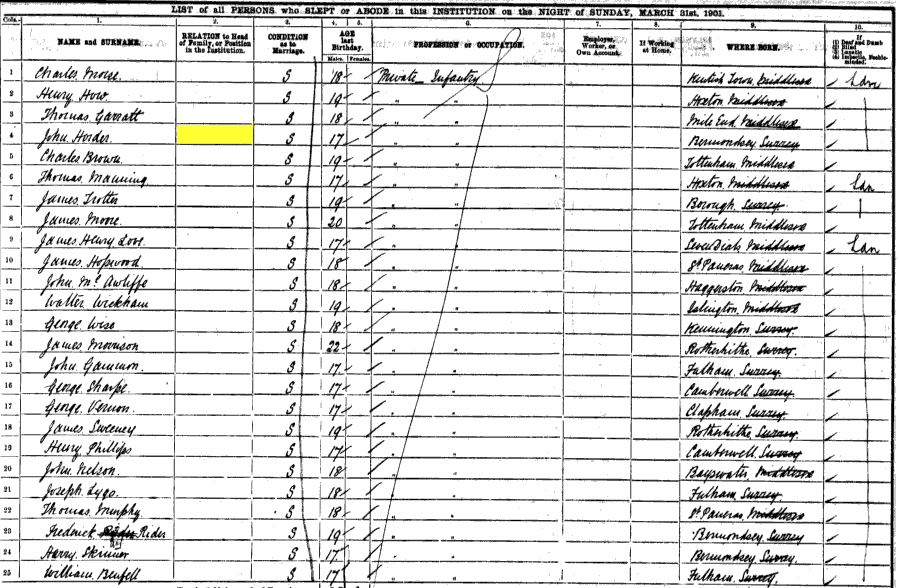 LIST of all PERSONS who SLEPT or ABODE in this INSTITUTION on the NIGHT of SUNDAY, MARCH 31st, 1901.
Cols. 1. 2. 3. 4. 5. 6. 7. 8. 9. 10.
NAME and SURNAME. RELATION to Head of Family, or Position in the Institution. CONDITION as to Marriage. AGE last Birthday. Males. Females. PROFESSION or OCCUPATION. Employer, Worker, or Own Account. If Working at Home. WHERE BORN. If (1) Deaf and Dumb (2) Blind (3) Lunatic (4) Imbecile, Feeble-minded.
1 Charles Moise. S 18 Private Infantry Kentish Town, Middlesex
2 Henry How S 19 " " Hoxton Middlesex
3 Thomas Garratt S 18 " " Mile End Middlesex
4 John Horder. S 17 " " Bermondsey Surrey
5 Charles Brown. S 19 " " Tottenham Middlesex
6 Thomas Manning S 17 " " Hoxton, Middlesex
7 James Trotter S 19 " " Borough, Surrey
8 James Moore. S 20 " " Tottenham Middlesex
9 James Henry Love. S 17 " " Seven Dials, Middlesex
10 James Hopwood S 18 " " St Pancras, Middlesex
11 John McAuliffe S 18 " " Haggerston Middlesex
12 Walter Wickham S 19 " " Islington, Middlesex
13 George Wise S 18 " " Kennington, Surrey.
14 James Morrison S 22 " " Rotherhithe, Surrey.
15 John Gammon. S 17 " " Fulham, Surrey.
16 George Sharpe. S 17 " " Camberwell Surrey
17 George Vernon. S 17 " " Clapham, Surrey
18 James Sweeney S 19 " " Rotherhithe Surrey
19 Henry Phillips S 17 " " Camberwell, Surrey
20 John Nelson. S 18 " " Bayswater Middlesex
21 Joseph Lygo. S 18 " " Fulham, Surrey.
22 Thomas Murphy. S 18 " " St Pancras, Middlesex
23 Frederick Rider S 19 " " Bermondsey, Surrey
24 Harry Skinner S 17 " " Bermondsey Surrey.
25 William Benfell S 17 " " Fulham, Surrey.